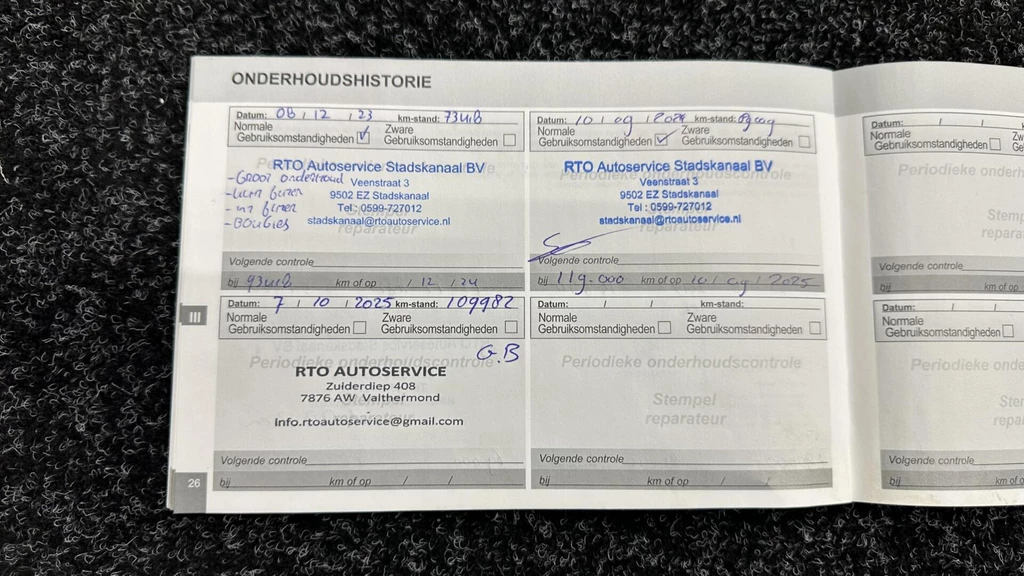 ONDERHOUDSHISTORIE
Datum: 08 / 12 / 23 km-stand:
Normale Gebruiksomstandigheden Zware Gebruiksomstandigheden
RTO Autoservice Stadskanaal BV
- Groot onderhoud
Veenstraat 3
9502 EZ Stadskanaal
Tel : 0599-727012
stadskanaal@rtoautoservice.nl
- BOUGIES
reparateur
Volgende controle
bij km of op / 12 / 24
Datum: 10 / 09 / 2024 km-stand:
Normale Gebruiksomstandigheden Zware Gebruiksomstandigheden
Periodieke onderhoudscontrole
RTO Autoservice Stadskanaal BV
Veenstraat 3
9502 EZ Stadskanaal
Tel : 0599-727012
stadskanaal@rtoautoservice.nl
reparateur
Volgende controle
bij 119.000 km of op 10 / 09 / 2025
Datum: 7 / 10 / 2025 km-stand: 109982
Normale Gebruiksomstandigheden Zware Gebruiksomstandigheden
G.B
Periodieke onderhoudscontrole
RTO AUTOSERVICE
Zuiderdiep 408
7876 AW Valthermond
Stempel
reparateur
Info.rtoautoservice@gmail.com
Volgende controle
bij km of op / /
Datum: / / km-stand:
Normale Gebruiksomstandigheden Zware Gebruiksomstandigheden
Periodieke onderhoudscontrole
Stempel
reparateur
Volgende controle
bij km of op / /
Datum: / /
Normale
Gebruiksomstandigheden
Periodieke
Volgende controle
bij km of op
Datum: / /
Normale
Gebruiksomstandigheden
Periodieke
Volgende controle
bij km of o
III
26